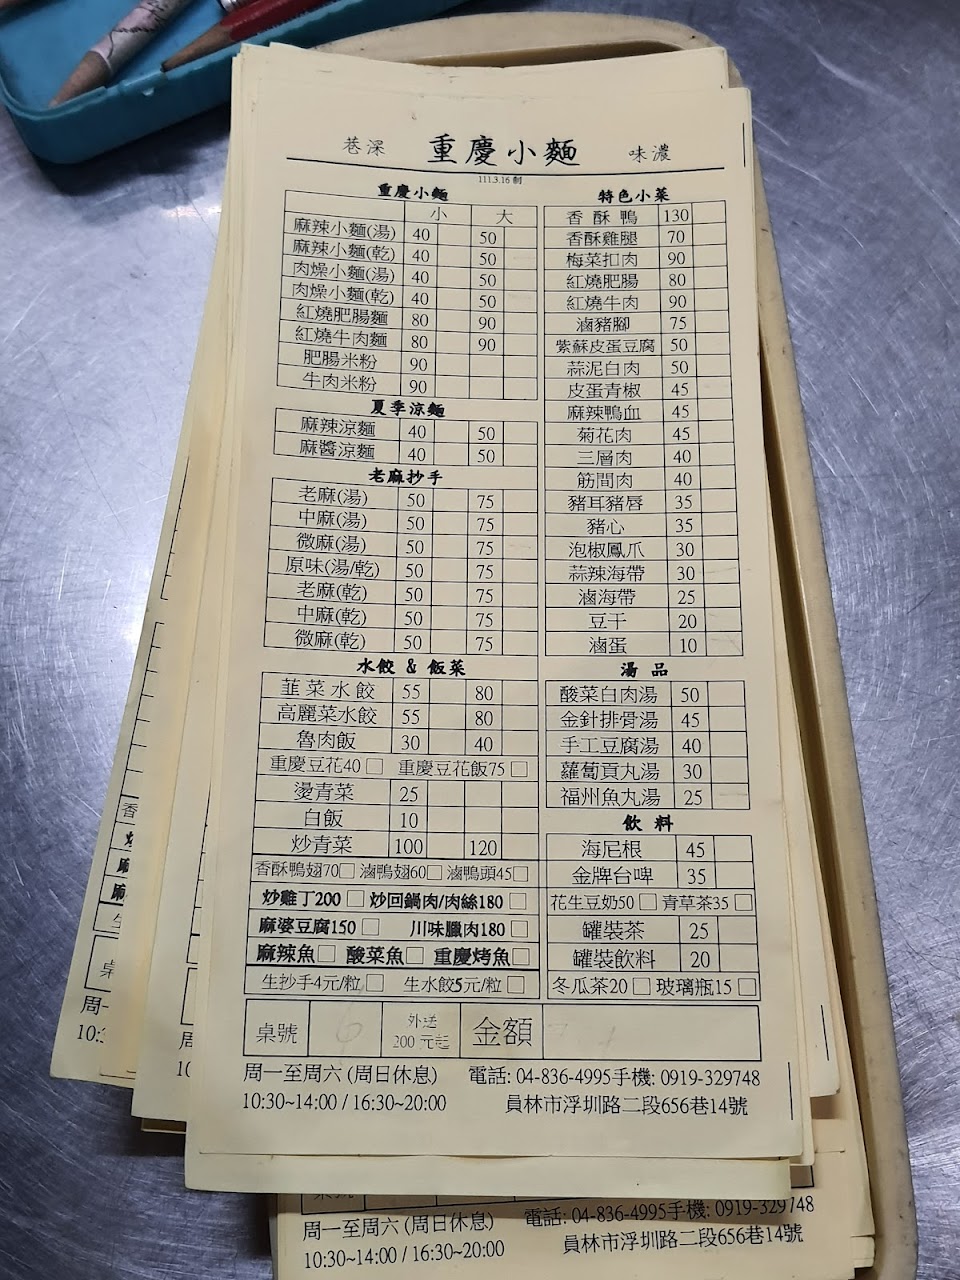 巷深 重慶小麵 味濃
111.3.16 制
重慶小麵
小 大
麻辣小麵(湯) 40 50
麻辣小麵(乾) 40 50
肉燥小麵(湯) 40 50
肉燥小麵(乾) 40 50
紅燒肥腸麵 80 90
紅燒牛肉麵 80 90
肥腸米粉 90
牛肉米粉 90
夏季涼麵
麻辣涼麵 40 50
麻醬涼麵 40 50
老麻抄手
老麻(湯) 50 75
中麻(湯) 50 75
微麻(湯) 50 75
原味(湯/乾) 50 75
老麻(乾) 50 75
中麻(乾) 50 75
微麻(乾) 50 75
水餃 & 飯菜
韮菜水餃 55 80
高麗菜水餃 55 80
魯肉飯 30 40
重慶豆花40□ 重慶豆花飯75□
燙青菜 25
白飯 10
炒青菜 100 120
香酥鴨翅70□ 滷鴨翅60□ 滷鴨頭45□
炒雞丁200□ 炒回鍋肉/肉絲180□
麻婆豆腐150□ 川味臘肉180□
麻辣魚□ 酸菜魚□ 重慶烤魚□
生抄手4元/粒□ 生水餃5元/粒□
特色小菜
香酥鴨 130
香酥雞腿 70
梅菜扣肉 90
紅燒肥腸 80
紅燒牛肉 90
滷豬腳 75
紫蘇皮蛋豆腐 50
蒜泥白肉 50
皮蛋青椒 45
麻辣鴨血 45
菊花肉 45
三層肉 40
筋間肉 40
豬耳豬唇 35
豬心 35
泡椒鳳爪 30
蒜辣海帶 30
滷海帶 25
豆干 20
滷蛋 10
湯品
酸菜白肉湯 50
金針排骨湯 45
手工豆腐湯 40
蘿蔔貢丸湯 30
福州魚丸湯 25
飲料
海尼根 45
金牌台啤 35
花生豆奶50□ 青草茶35□
罐裝茶 25
罐裝飲料 20
冬瓜茶20□ 玻璃瓶15□
桌號 6 外送 200元起 金額
周一至周六 (周日休息) 電話: 04-836-4995手機: 0919-329748
10:30~14:00 / 16:30~20:00 員林市浮圳路二段656巷14號
周一至周六 (周日休息) 電話: 04-836-4995手機: 0919-329748
10:30~14:00 / 16:30~20:00 員林市浮圳路二段656巷14號